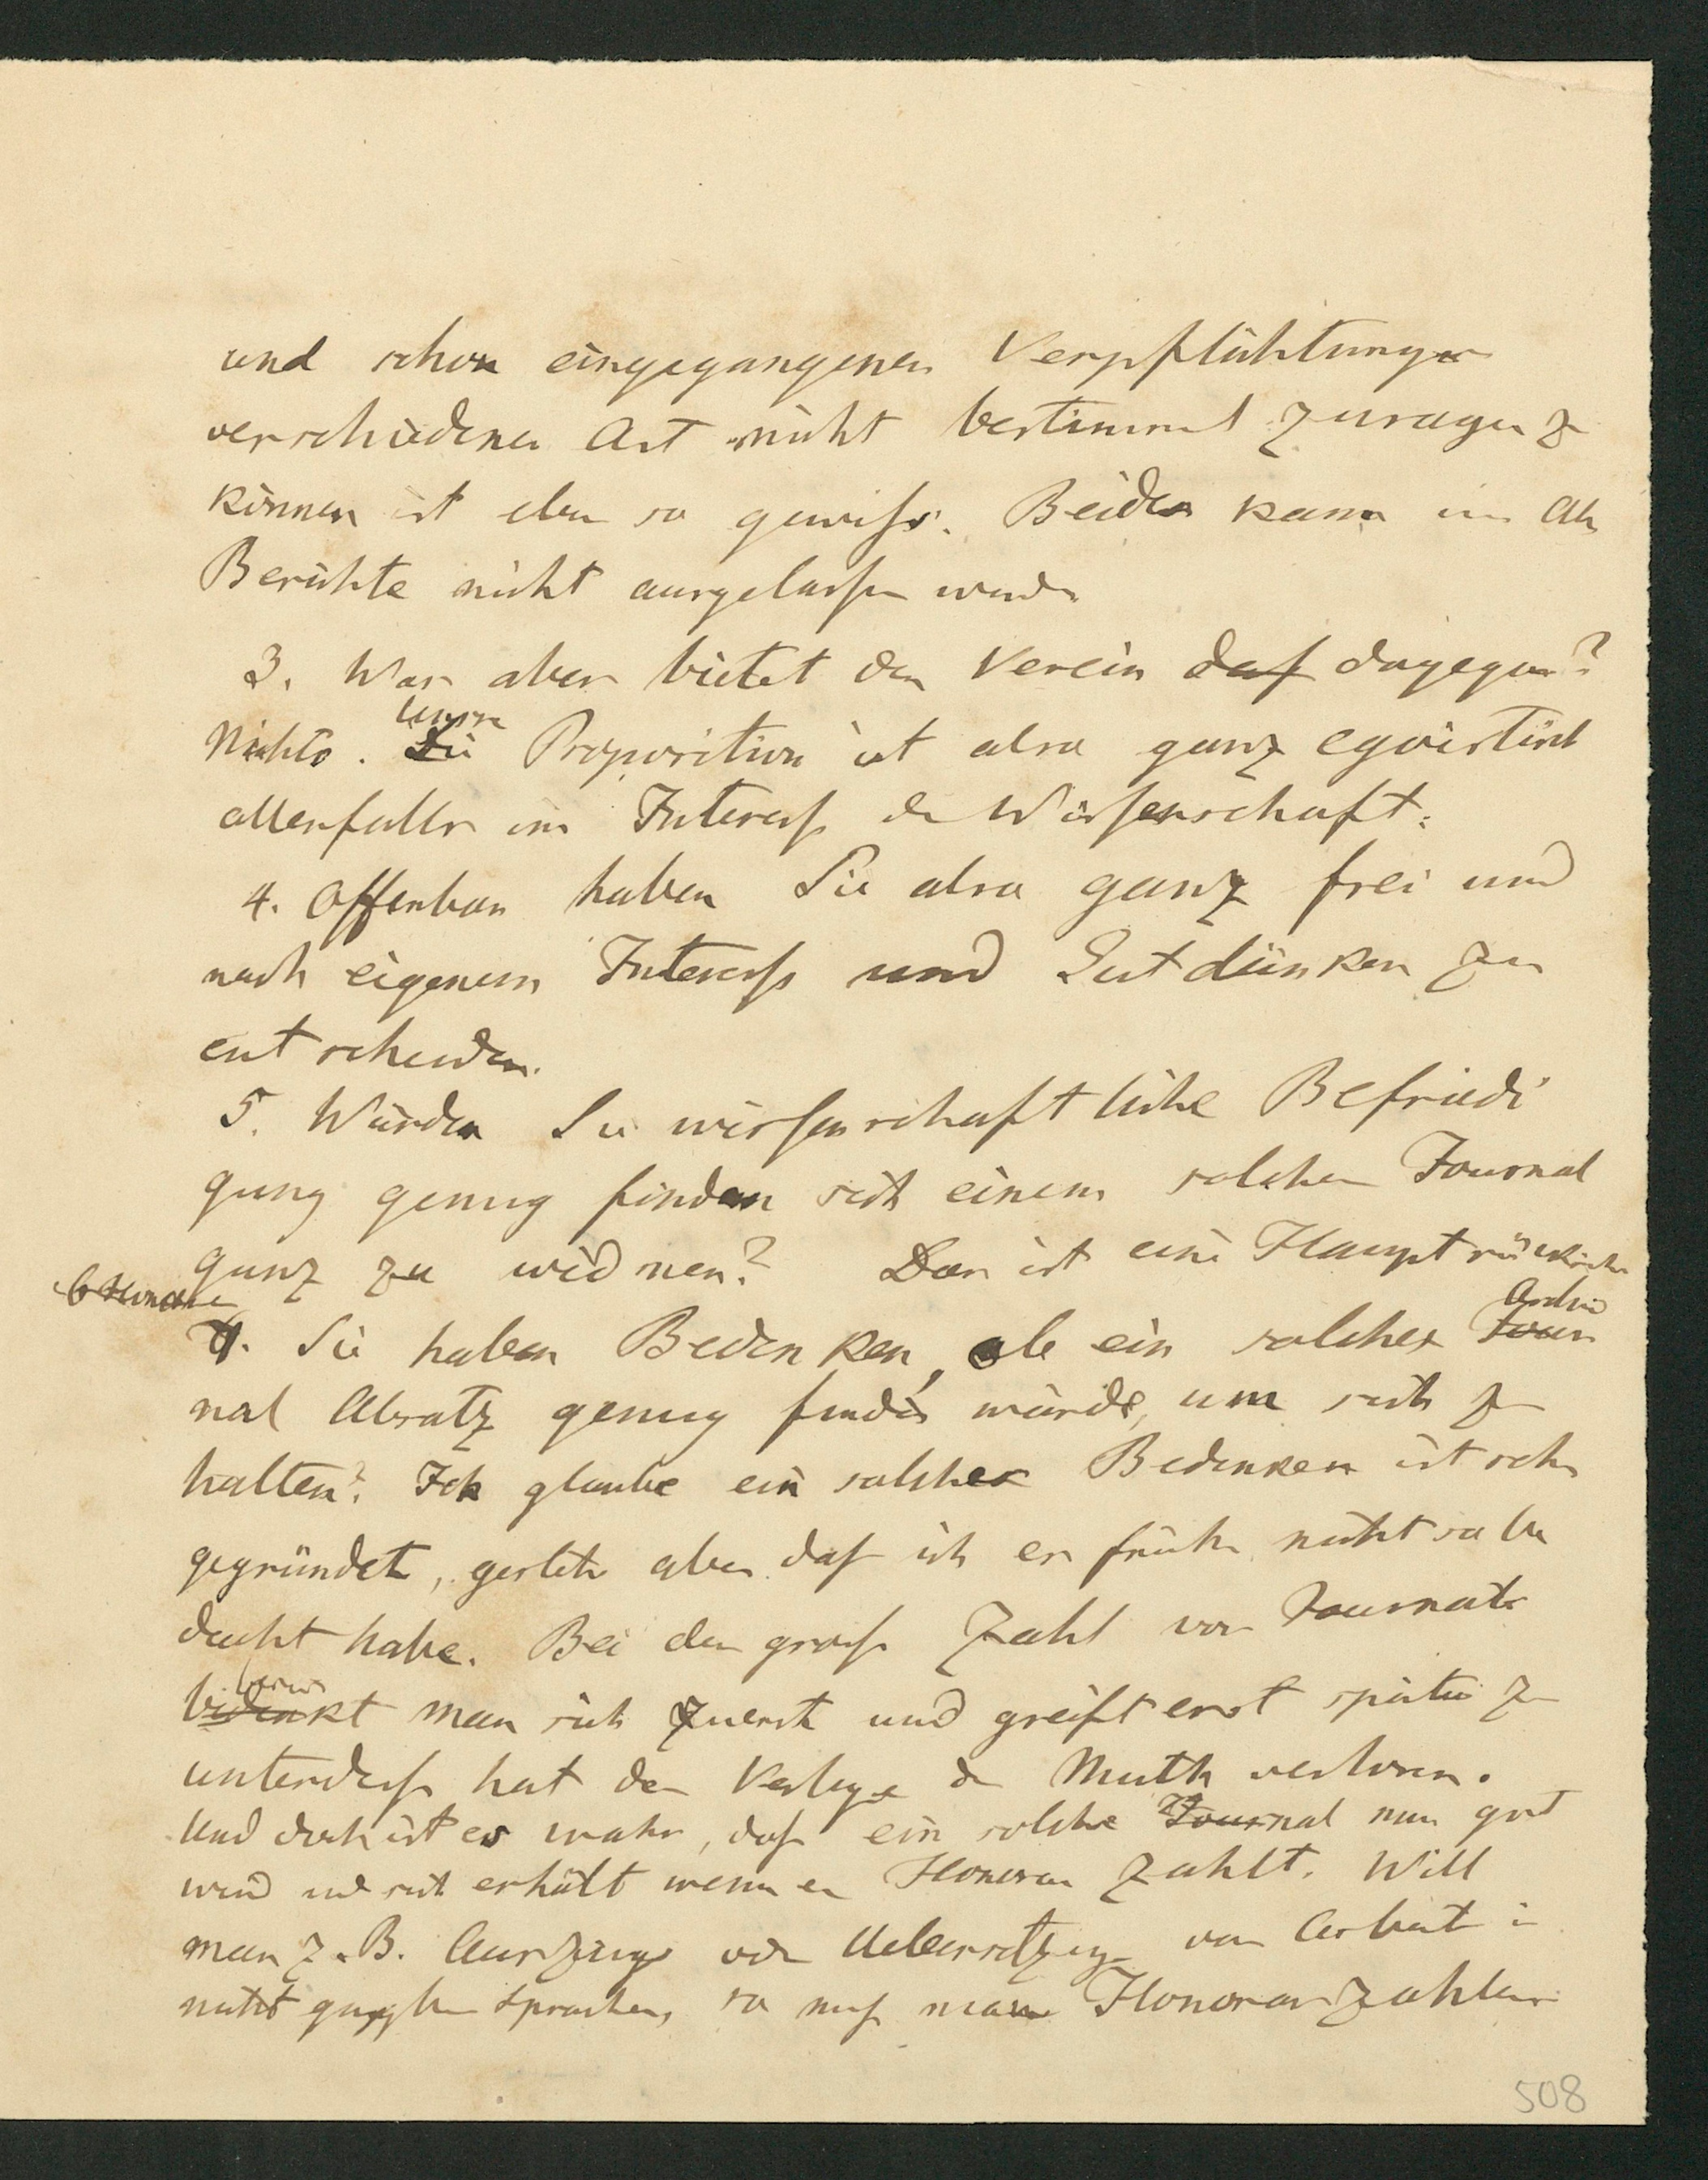 und schon eingegangenen Verpflichtungen
verschiedener Art nicht bestimmt zusagen z
können ist eben so gewiß. Beides kann im Ah
Berichte nicht ausgelassen werden
3. Was aber bietet der Verein daß dagegen?
Unsre
Nichts. Die Proposition ist also ganz egoistisch
allenfalls im Interesse der Wissenschaft.
4. Offenbar haben Sie also ganz frei und
nach eigenem Interesse und Gutdünken zu
entscheiden.
5. Würden Sie wissenschaftliche Befriedi
gung genug finden sich einem solchen Journal
ganz zu widmen? Das ist eine Hauptrücksicht
Archiv
Sie haben Bedenken, ob ein solches Jour
nal Absatz genug finden würde, um sich zu
halten? Ich glaube ein solches Bedenken ist sehr
gegründet, gestehe aber daß ich es früher nicht so be
dacht habe. Bei der großen Zahl von Journalen
besinnt
bedenkt man sich zuerst und greift erst später zu
unterdeß hat der Verleger den Muth verloren.
Und doch ist es wahr, daß ein solches Journal nur gut
wird und sich erhält wenn es Honorar zahlt. Will
man z. B. Auszüge oder Uebersetzungen von Arbeiten in
nicht Sprachen, so muß man Honorar zahlen
508